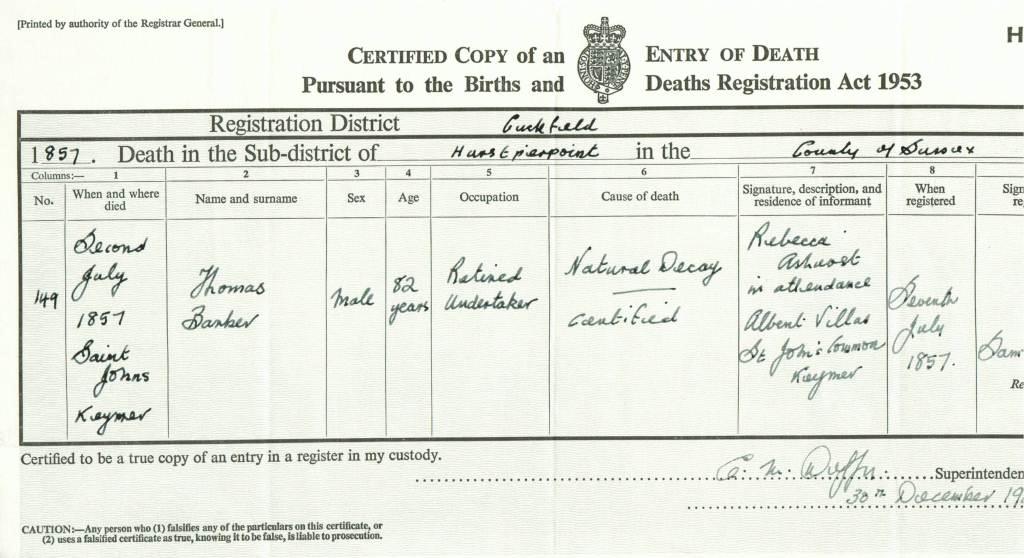 [Printed by authority of the Registrar General.]
H
CERTIFIED COPY of an ENTRY OF DEATH
Pursuant to the Births and Deaths Registration Act 1953
Registration District Cuckfield
1857. Death in the Sub-district of Hurstpierpoint in the County of Sussex
Columns:— 1 2 3 4 5 6 7 8
No. When and where died Name and surname Sex Age Occupation Cause of death Signature, description, and residence of informant When registered Sign
re
149
Second
July
1857
Saint
Johns
Keymer
Thomas
Banker
Male
82
years
Retired
Undertaker
Natural Decay
Certified
Rebecca
Ashurst
in attendance
Albert Villas
St John's Common
Keymer
Seventh
July
1857.
Sam
Re
Certified to be a true copy of an entry in a register in my custody.
Superintenden
30th December 19
CAUTION:—Any person who (1) falsifies any of the particulars on this certificate, or
(2) uses a falsified certificate as true, knowing it to be false, is liable to prosecution.